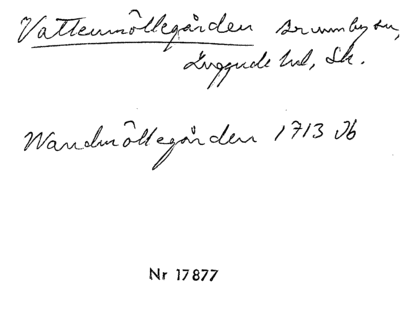 Vattenmöllegården Brunnby sn,
Luggude hd, Sk.
Wandmöllegården 1713 Jb
Nr 17877